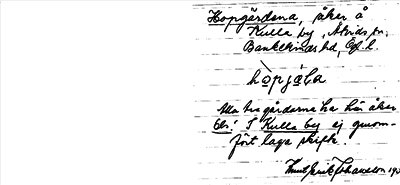 Hopgärdena, åker å
Kulla by, Åtvids sn,
Bankekinds hd, Ög. l.
hòpjáḷa
Alla tre gårdarna ha här åker
Obs! I Kulla by ej genom-
fört laga skifte.
Knut Erik Johansson 193